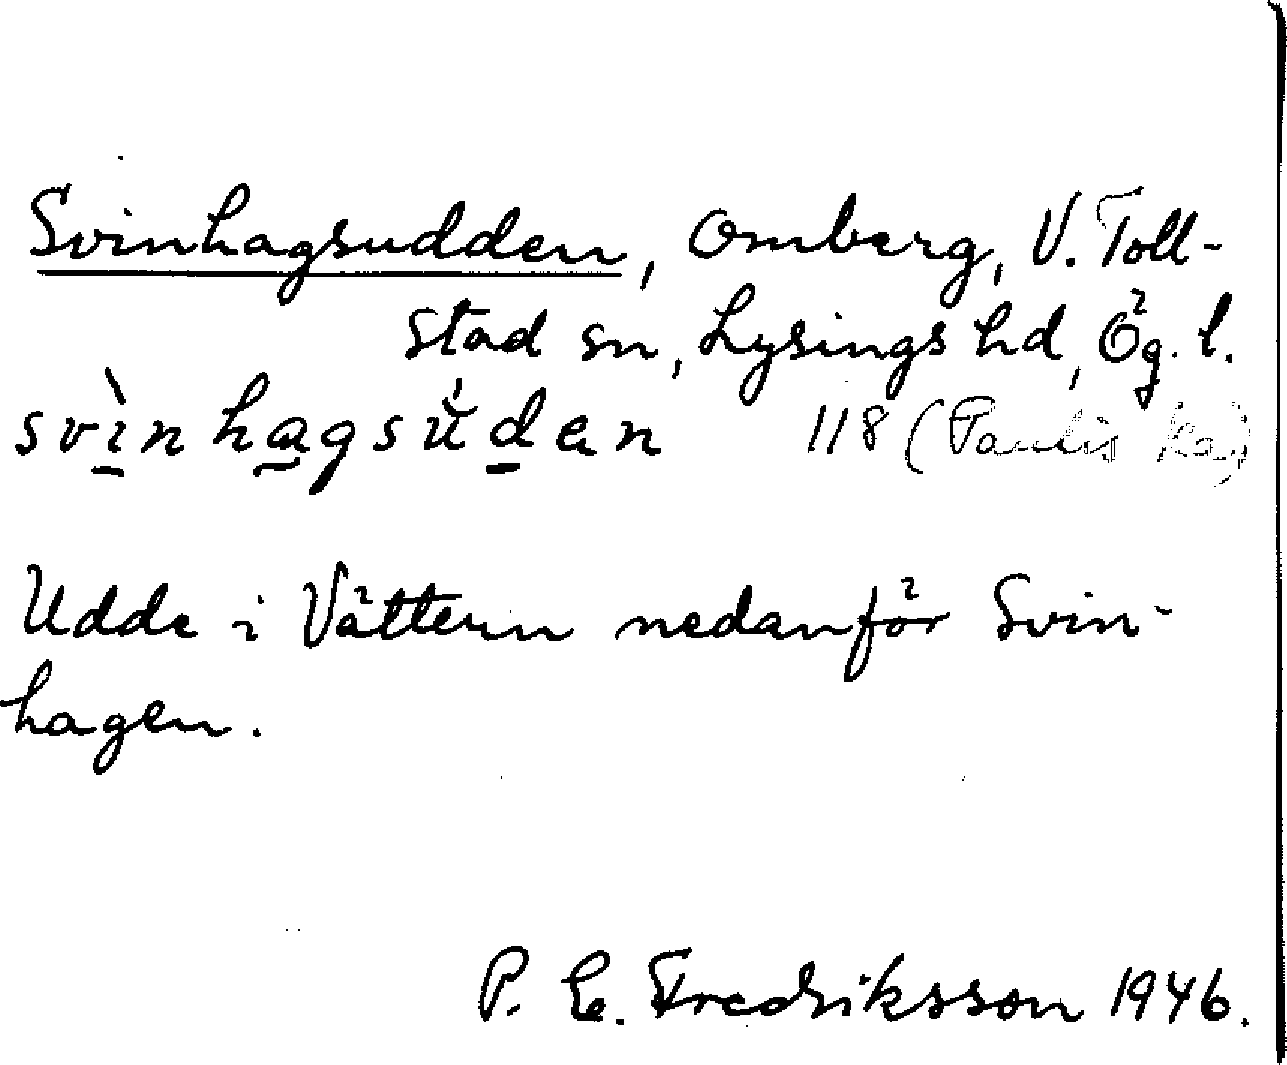 Svinhagsudden, Omberg, V. Toll-
stad sn, Lysings hd, Ög. l.
svì̱nha̱gsúḏen 118 (Paulis ka)
Udde i Vättern nedanför Svin-
hagen.
P. E. Fredriksson 1946.